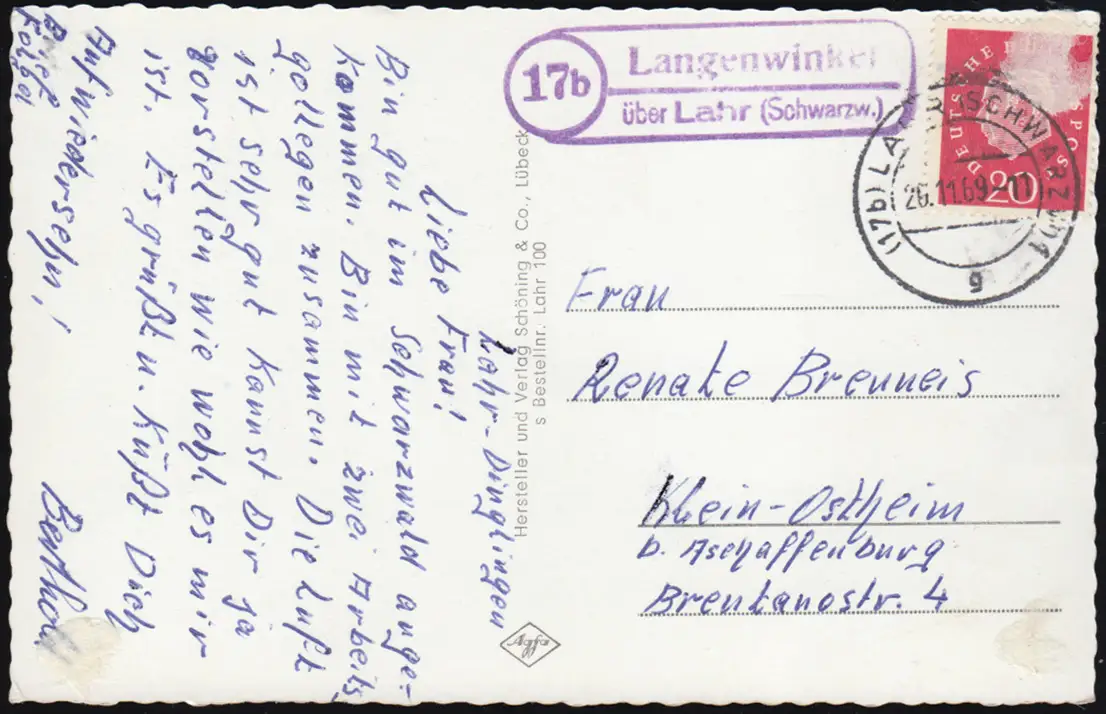 Lahr-Dinglingen
Liebe Frau!
Bin gut im Schwarzwald ange-
kommen. Bin mit zwei Arbeits
gollegen zusammen. Die Luft
ist sehr gut kannst Dir ja
vorstellen wie wohl es mir
ist. Es grüßt u. Küßt Dich
Berthold
Auf Wiedersehn!
Brief
folgt
17b
Langenwinkel
über Lahr (Schwarzw.)
DEUTSCHE BUNDESPOST
20
(17b) LAHR (SCHWARZW) 1
26.11.69-11
g
Frau
Renate Brenneis
Klein-Ostheim
b. Aschaffenburg
Brentanostr. 4
Hersteller und Verlag Schöning & Co., Lübeck
s Bestellnr. Lahr 100
Agfa